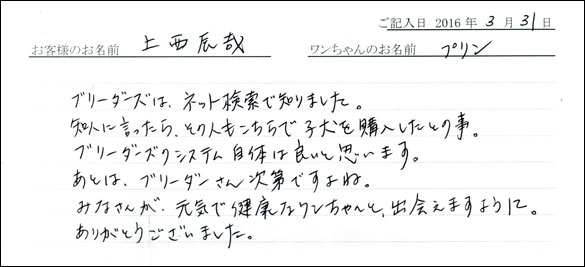 ご記入日 2016 年 3 月 31 日
お客様のお名前 上西辰哉 ワンちゃんのお名前 プリン
ブリーダーズは、ネット検索で知りました。
知人に言ったら、その人もこちらで子犬を購入したとの事。
ブリーダーズのシステム自体は良いと思います。
あとは、ブリーダーさん次第ですよね。
みなさんが、元気で健康なワンちゃんと、出会えますように。
ありがとうございました。